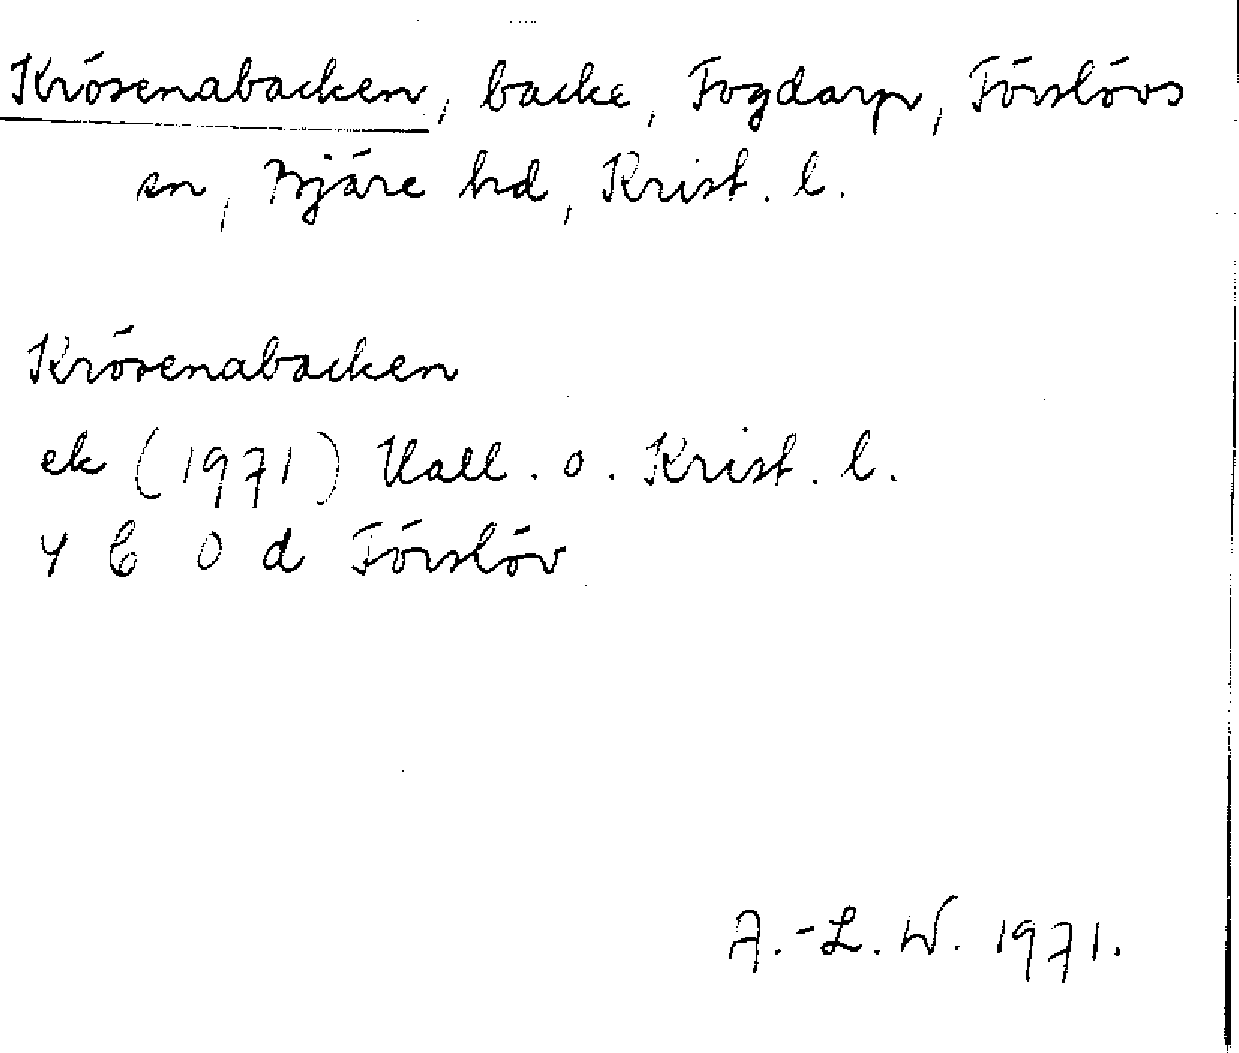 Krösenabacken, backe, Fogdarp, Förslövs
sn, Bjäre hd, Krist. l.
Krösenabacken
ek (1971) Hall. o. Krist. l.
4 C 0 d Förslöv
A.-L. W. 1971.